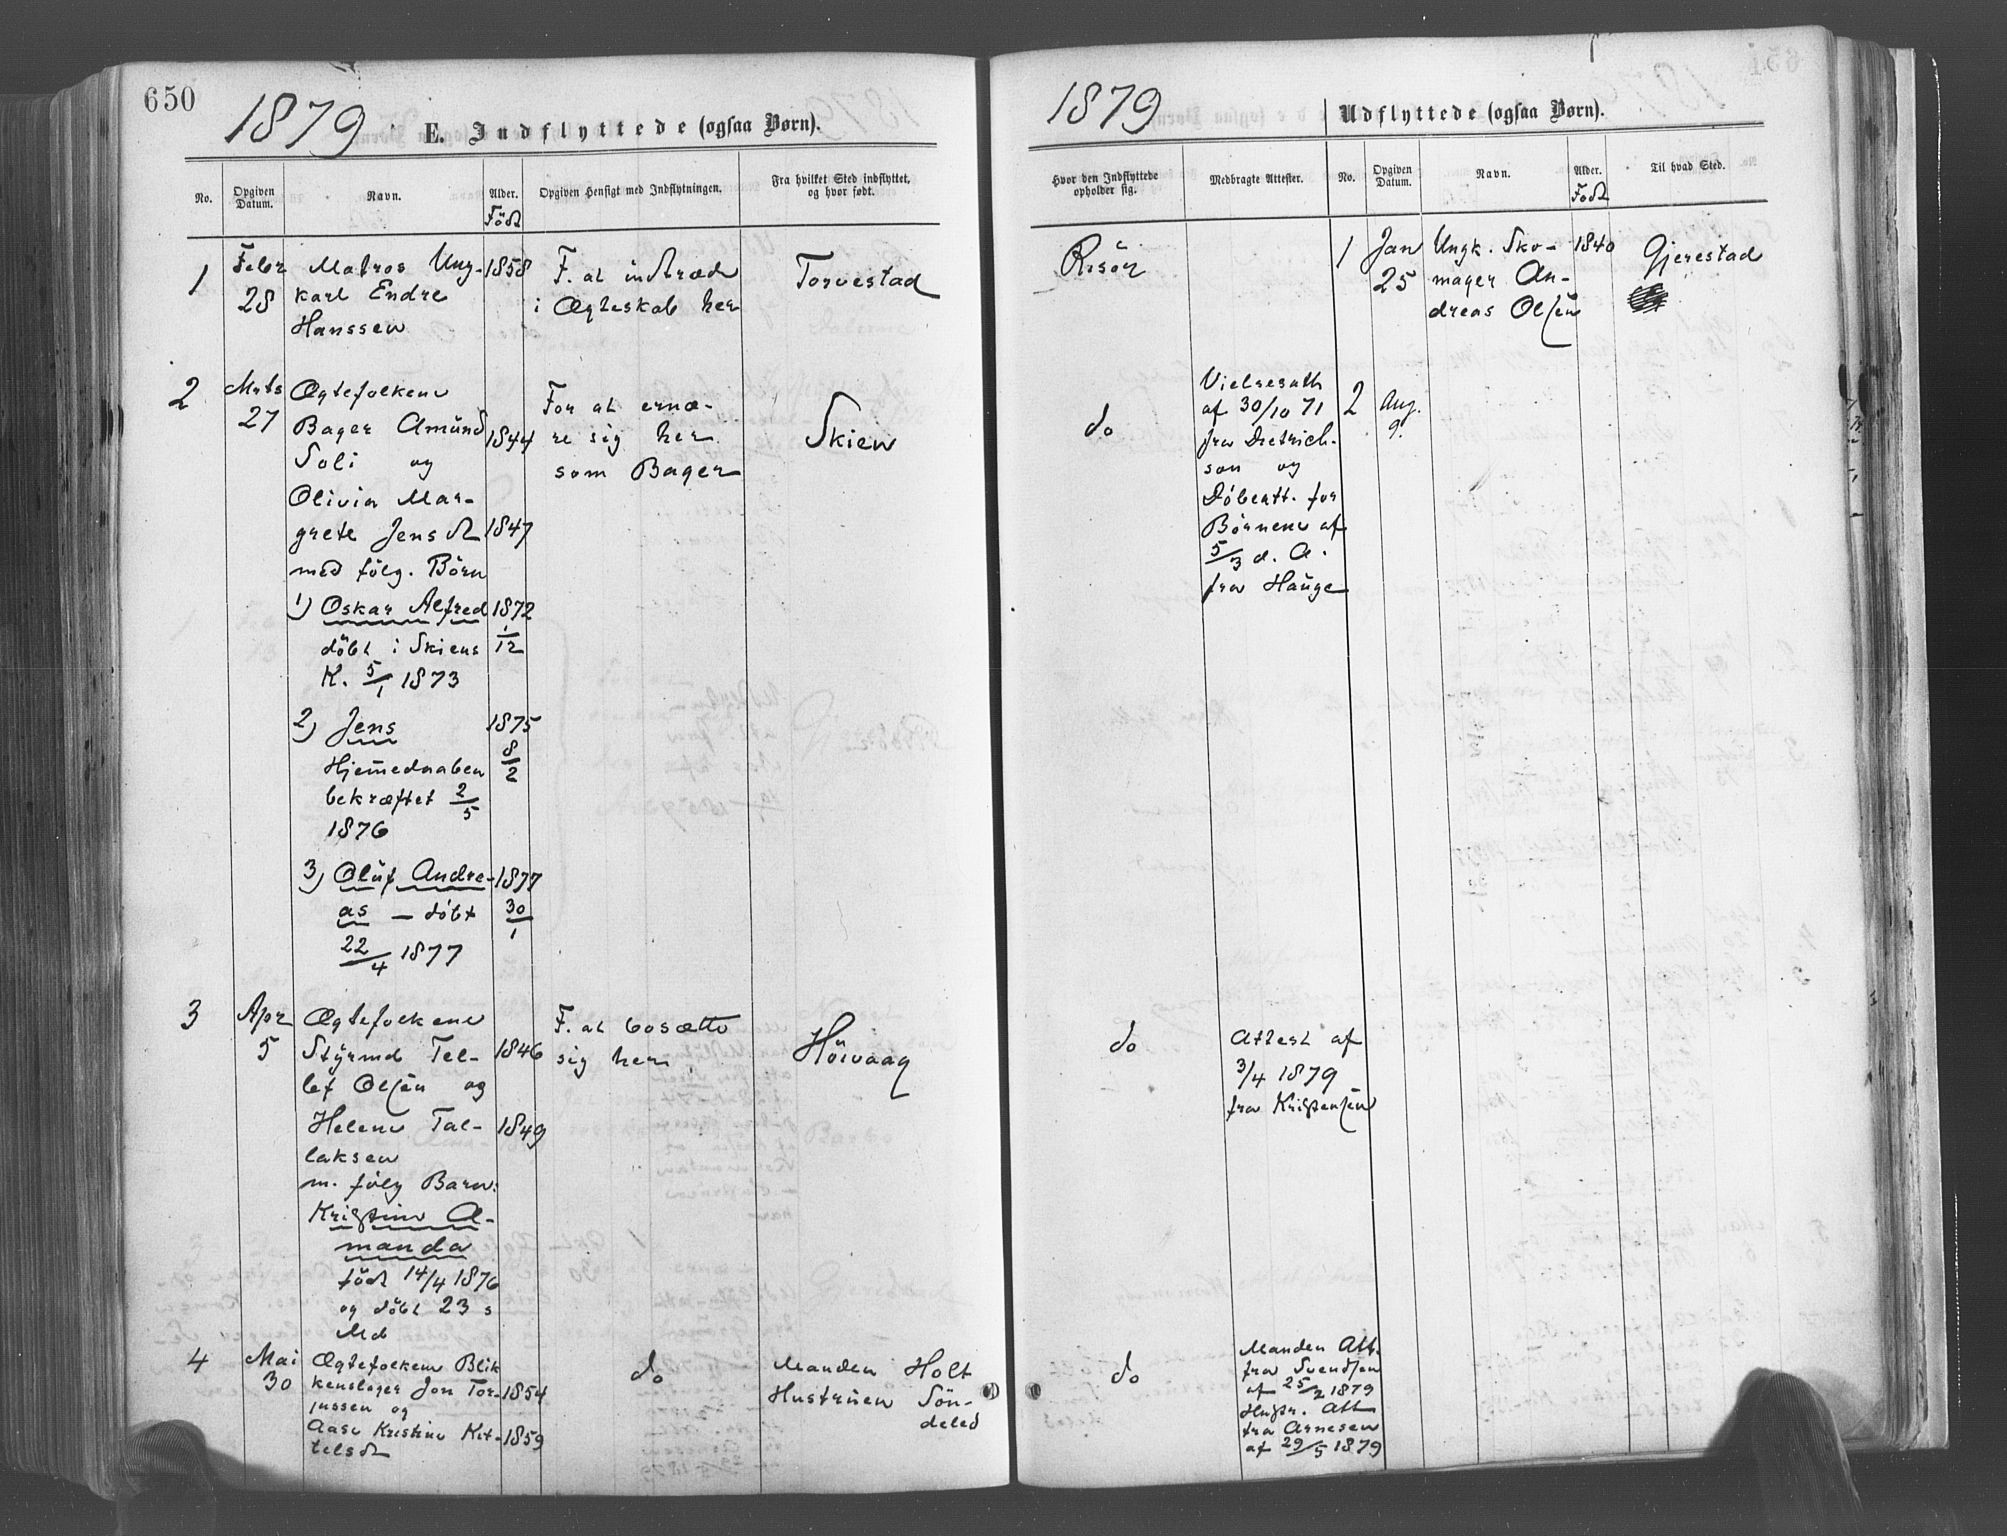 650
1879
E. Indflyttede (ogsaa Børn).
No.
Opgiven
Datum.
Navn.
Alder.
Född
Opgiven Hensigt med Indflytningen.
Fra hvilket Sted indflyttet,
og hvor født.
1
Febr
28
Matros Ung-
karl Endre
Hanssen
1858
F. at indtræde
i Ægteskab her
Torvestad
2
Mrts
27
Ægtefolkene
Bager Amund
Soli og
Olivia Mar-
grete Jensd
med følg. Børn
1844
1847
1) Oskar Alfred
döbt i Skiens
K. 5/1 1873
1872
1/12
2) Jens
Hjemmedaaben
bekræftet 2/5
1876
1875
8/2
3) Oluf Andre-
as — döbt
22/4 1877
1877
30/1
For at ernæ-
re sig her
som Bager
Skien
3
Apr
5
Ægtefolkene
Styrmd Tel-
lef Olsen og
Helene Tal-
laksen
m. følg Barn:
Kristine A-
manda
född 14/4 1876
og döbt 23 s
Md
1846
1849
F. at bosætte
sig her
Höivaag
4
Mai
30
Ægtefolkene Blik
kenslager Jon Tor-
jussen og
Aase Kristine Kit-
telsd
1854
1859
do
Manden Holt
Hustruen Sön-
deled
1879
Udflyttede (ogsaa Børn).
Hvor den Indflyttede
opholder sig.
Medbragte Attester.
No.
Opgiven
Datum.
Navn.
Alder.
Född
Til hvad Sted.
Risör
1
Jan
25
Ungk. Sko-
mager An-
dreas Olsen
1840
Gjerestad
do
Vielsesatt
af 30/10 71
fra Dietrich-
son og
Döbeatt. for
Börnene af
5/3 d. A.
fra Hauge
2
Aug.
9.
do
Attest af
3/4 1879
fra Kristensen
do
Manden Att.
fra Svendsen
af 25/2 1879
Hustr. Att
fra Arnesen
af 29/5 1879